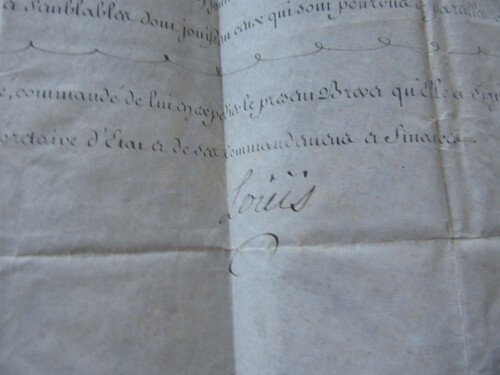 et semblables dont jouissent ceux qui sont pourvus de pareilles
commandé de lui en expedier le present Brevet qu'Elle a signé
d'Etat et de ses Commandemens et Finances.
Loüis